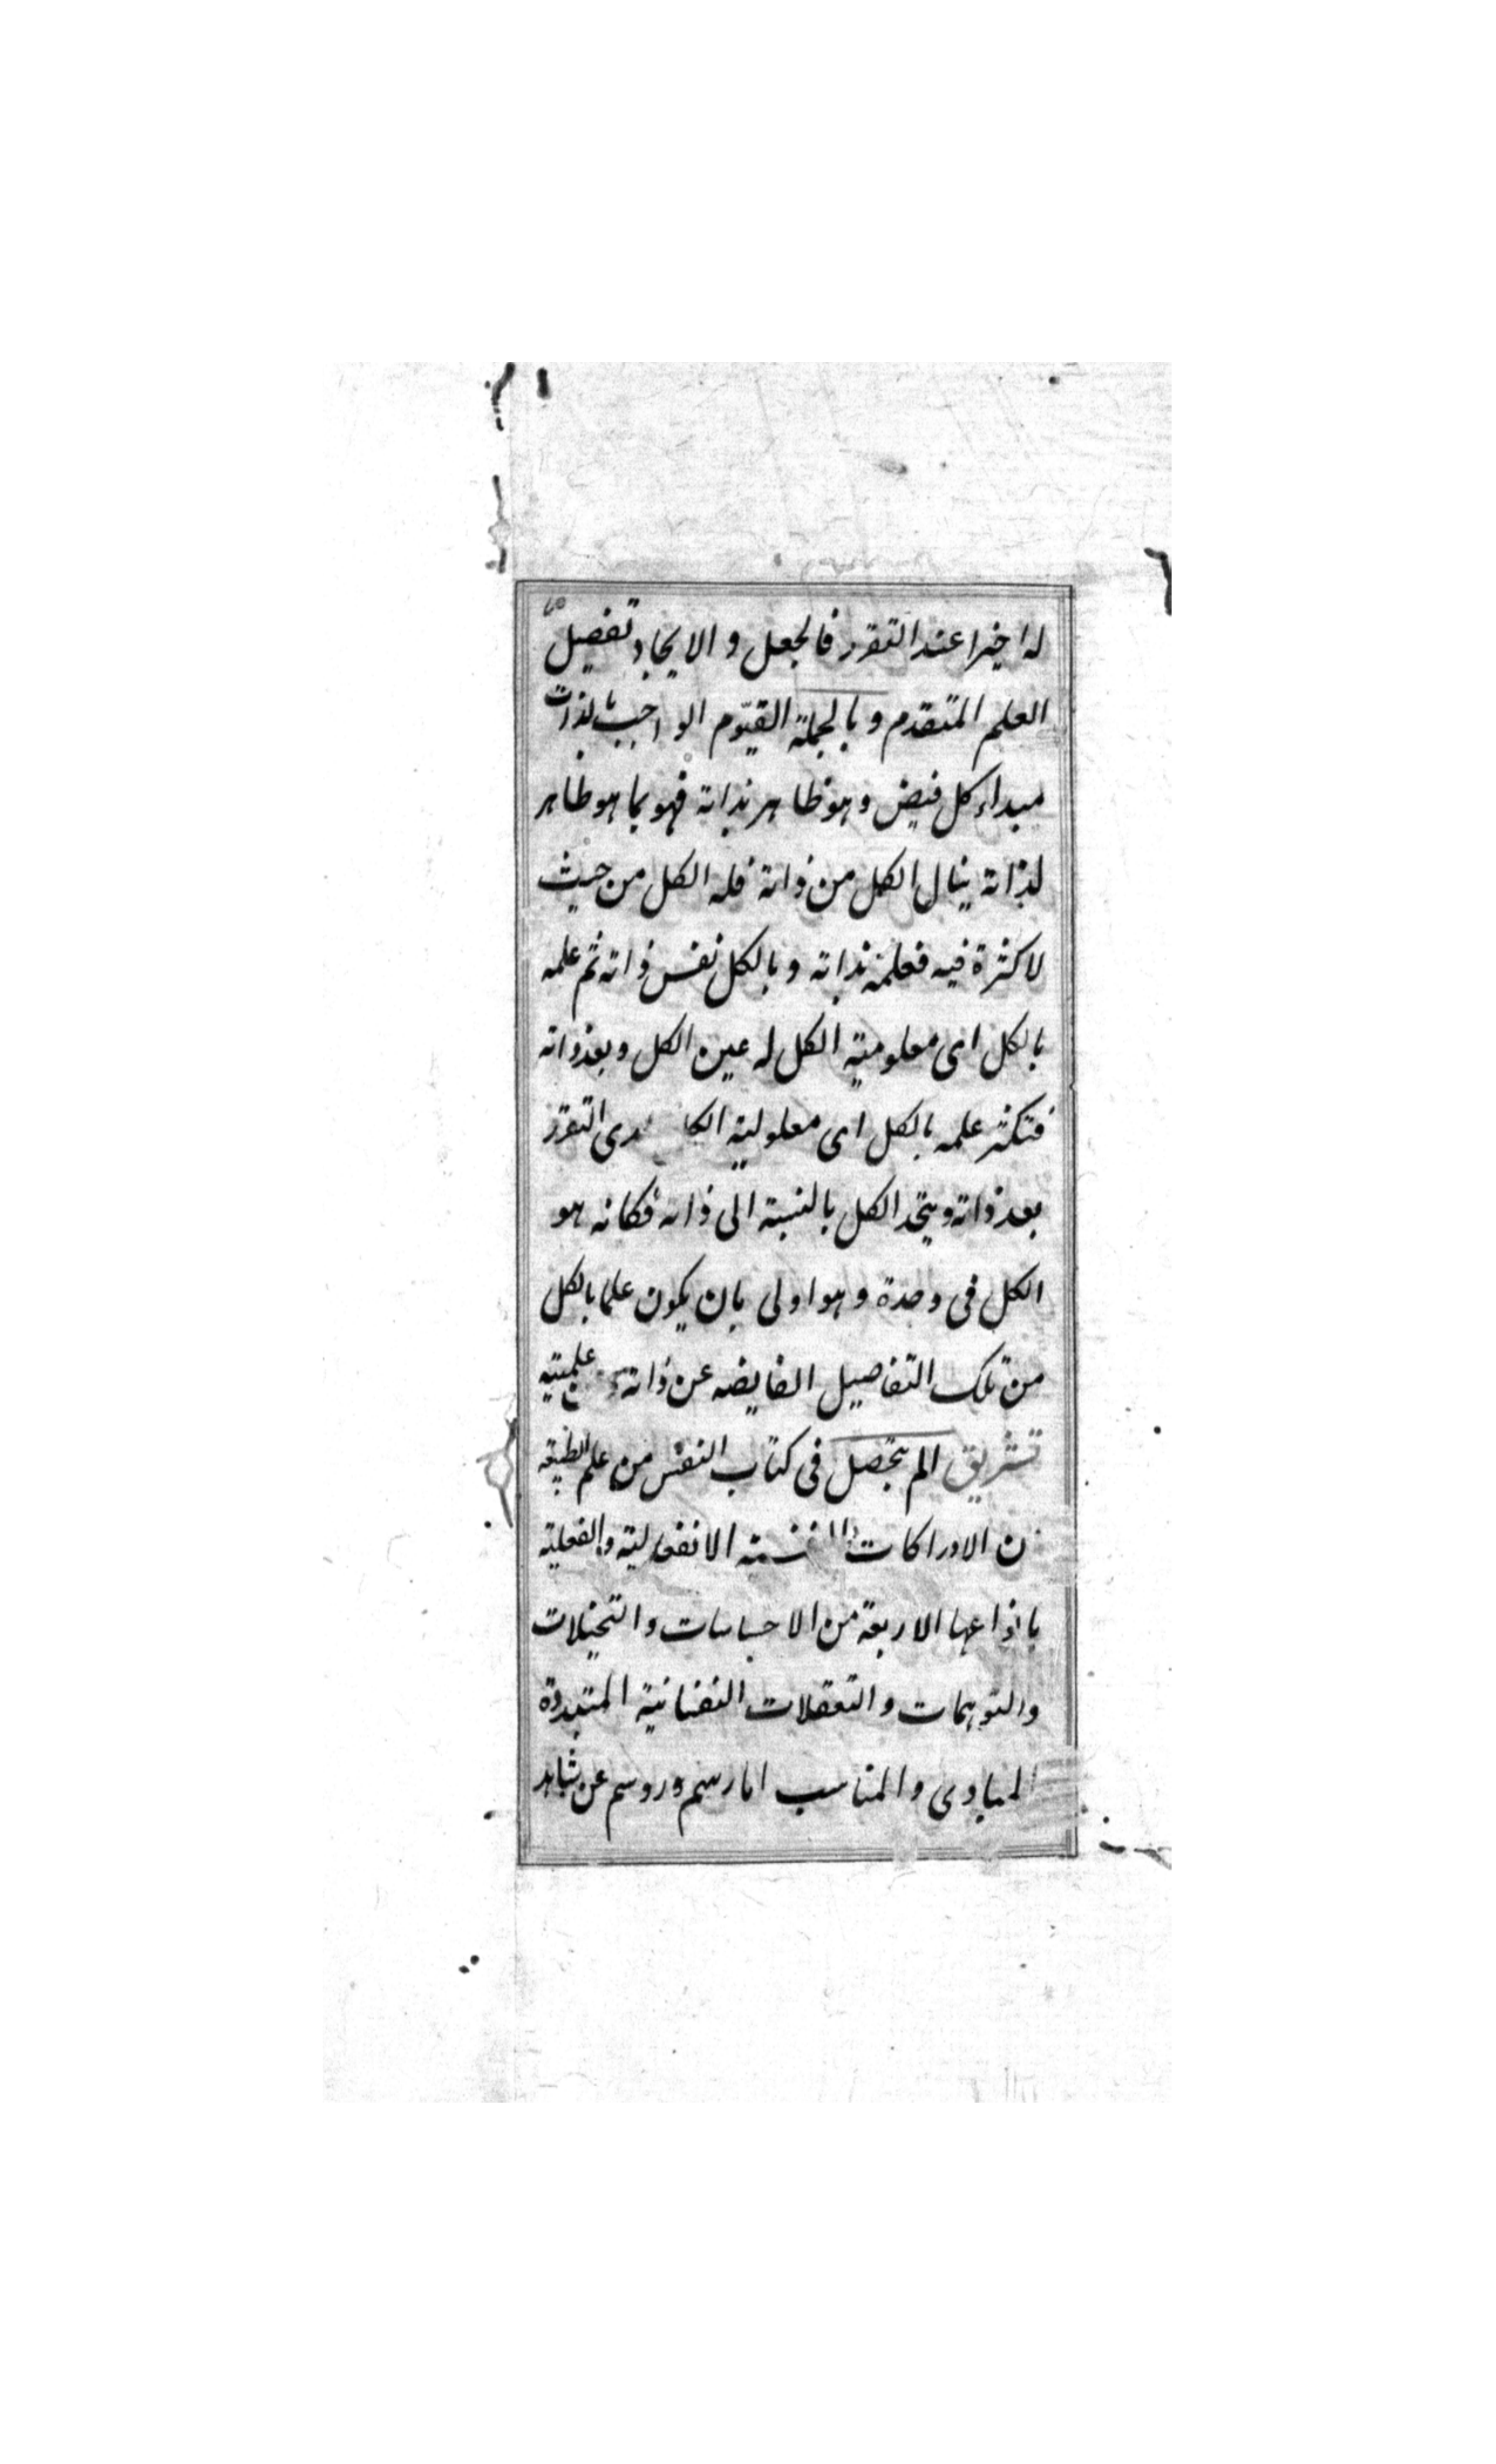 له اخيرا عند التقرر فالجعل و الايجاد تفصيل
العلم المتقدم و بالجملة القيّوم الواجب بالذات
مبداء كل فيض و هو ظاهر بذاته فهو بما هو ظاهر
لذاته ينال الكل من ذاته فله الكل من حيث
لا كثرة فيه فعلمه بذاته و بالكل نفس ذاته ثم علمه
بالكل اى معلومية الكل له عين الكل و بعد ذاته
فتكثر علمه بالكل اى معلولية التقرر
بعد ذاته و يتحد الكل بالنسبة الى ذاته فكانه هو
الكل فى وحدة و هو اولى بان يكون علما بالكل
من تلك التفاصيل الفايضه عن ذاته علميته
تشريق الم يتحصل فى كتاب النفس من علم الطبيعه
ن الادراكات الانفعالية و الفعلية
بانواعها الاربعة من الاحساسات و التخيلات
و التوهمات و التعقلات النفسانية المتبددة
المبادى و المناسب اما رسم و روسم عن شاهد